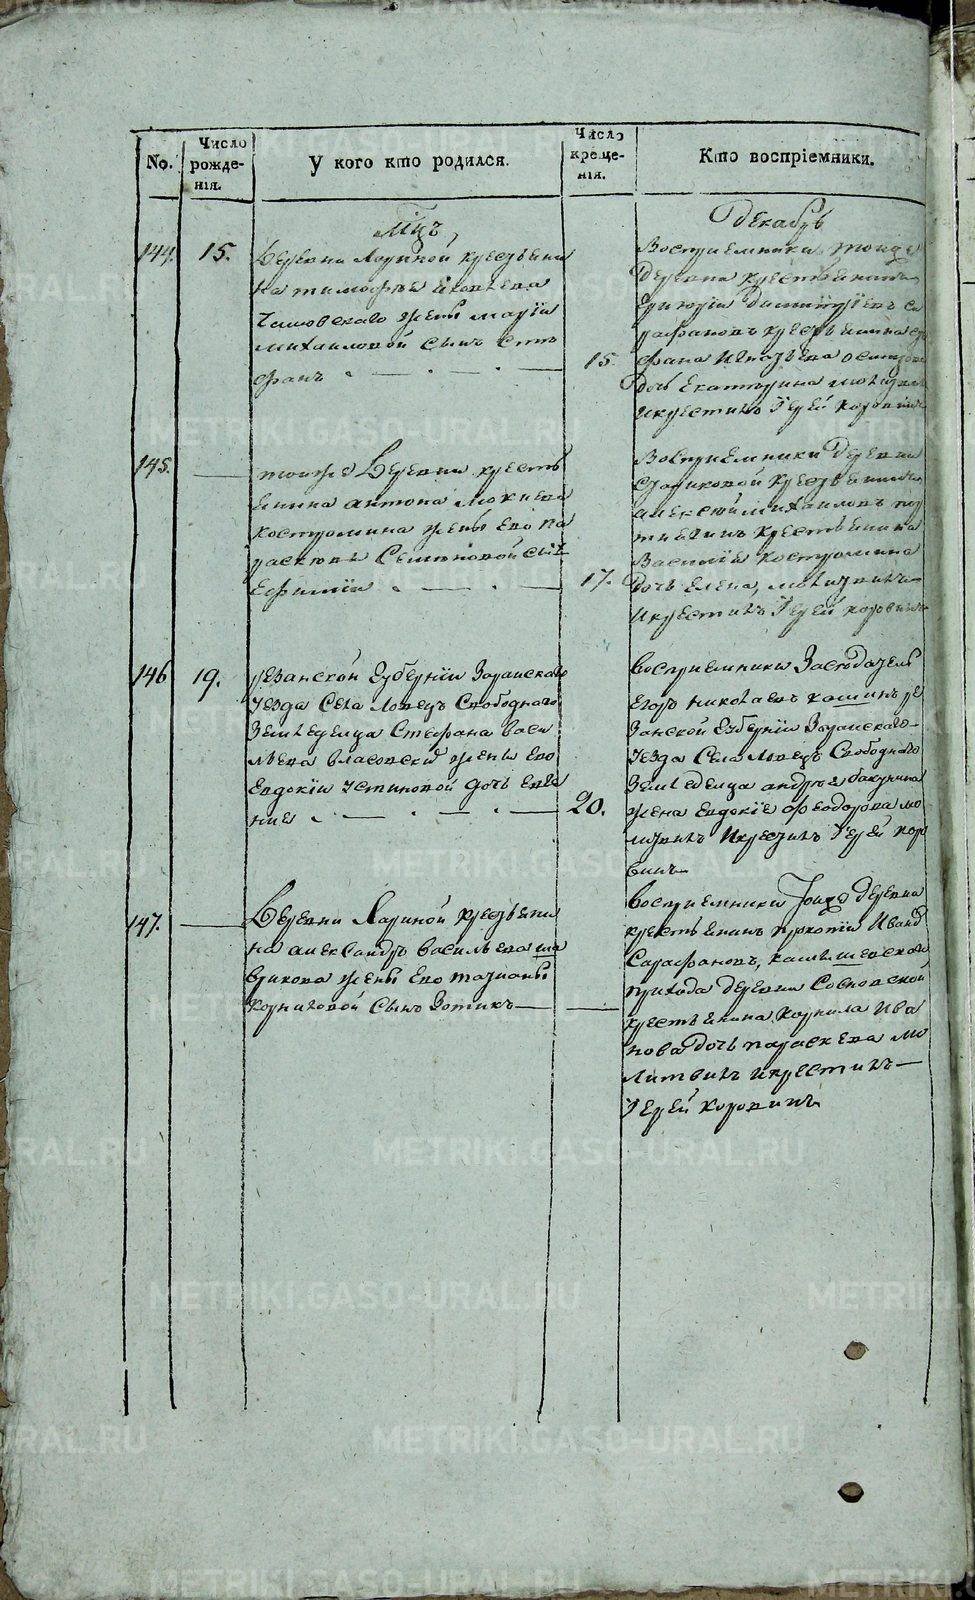 No.
Число рожде-нія.
У кого кто родился.
Число креще-нія.
Кто воспріемники.
Мцъ,
Декабрь
144.
15.
Деревни Лариной крестьяни
на тимофея яковлева
жены марии
михаиловой сынъ Сте
фанъ
15
Восприемники тоиже
деревни крестьянинъ
рафановъ крестьянина
фана Игнатьева
дочь Екатерина
икрестилъ Іерей коровинъ
145.
тоиже Деревни кресть
янина антона
костромина жены ево па
раскевы Семеновой сынъ
Ефимии
17.
Восприемники деревни
крестьянинъ
алексей михаиловъ
крестьянина
Василия костромина
дочь Елена, молитвилъ
икрестилъ Іерей коровинъ
146
19.
резанской Губерніи Зарайскаго
уезда Села Ловецъ Свободнаго
Земледелца Стефана Васи
льева власовски жены ево
Евдокіи устиновой дочь Евге
ние
20.
восприемники
Егоръ николаевъ кашинъ ре
занской Губерніи Зарайскаго
уезда Села Ловецъ Свободнаго
Земледелца андрея бакунина
жена Евдокіе Феодорова мо
литвилъ Икрестилъ Іерей коро
винъ
147.
Деревни Лариной крестьяни
на александра васильева ша
врикова жены ево татианы
корниловой Сынъ Зотикъ
восприемники Тоиже деревни
крестьянинъ прокопіи Иванъ
Сарафановъ, камышевской
прихода деревни Сосновской
крестьянина Корнила Ива
нова дочь параскева мо
литвилъ икрестилъ
Іерей коровинъ
METRIKI.GASO-URAL.RU